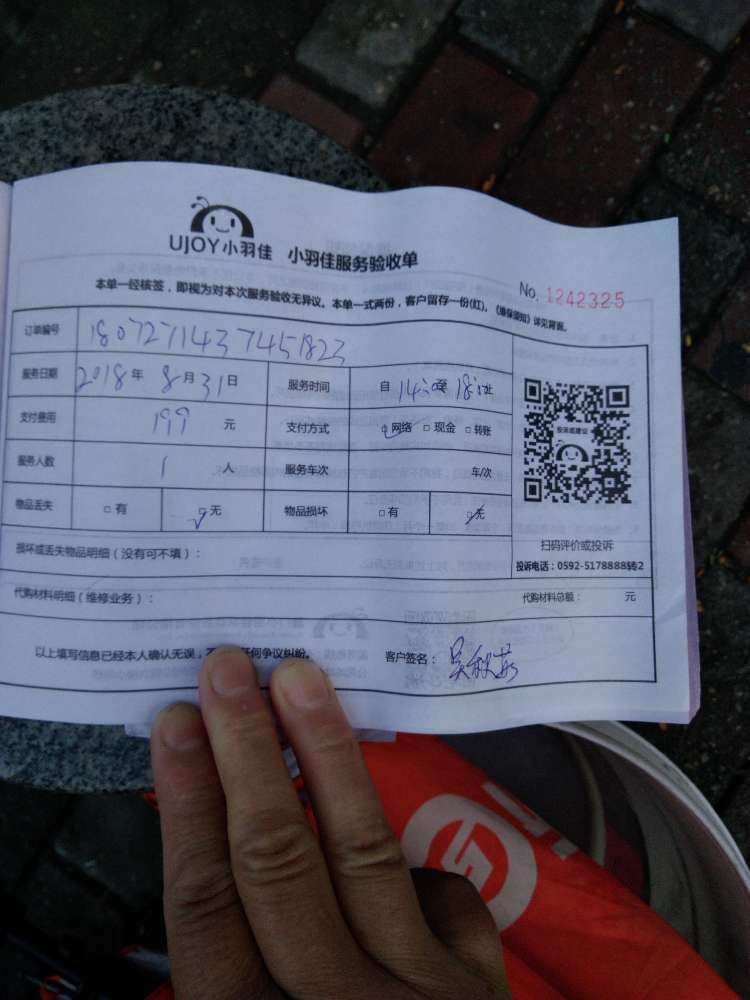 UJOY小羽佳 小羽佳服务验收单
No. 1242325
本单一经核签，即视为对本次服务验收无异议。本单一式两份，客户留存一份(红)。《维保须知》详见背面。
订单编号 180727143745 1823
服务日期 2018年 8月31日 服务时间 自 14:00至 18:00止
支付费用 199 元 支付方式 ☑网络 □现金 □转账
服务人数 1 人 服务车次 车/次
物品丢失 □有 ☑无 物品损坏 □有 ☑无
投诉或建议
扫码评价或投诉
投诉电话：0592-5178888转2
损坏或丢失物品明细（没有可不填）：
代购材料明细（维修业务）： 代购材料总额： 元
以上填写信息已经本人确认无误，不 任何争议纠纷。 客户签名：